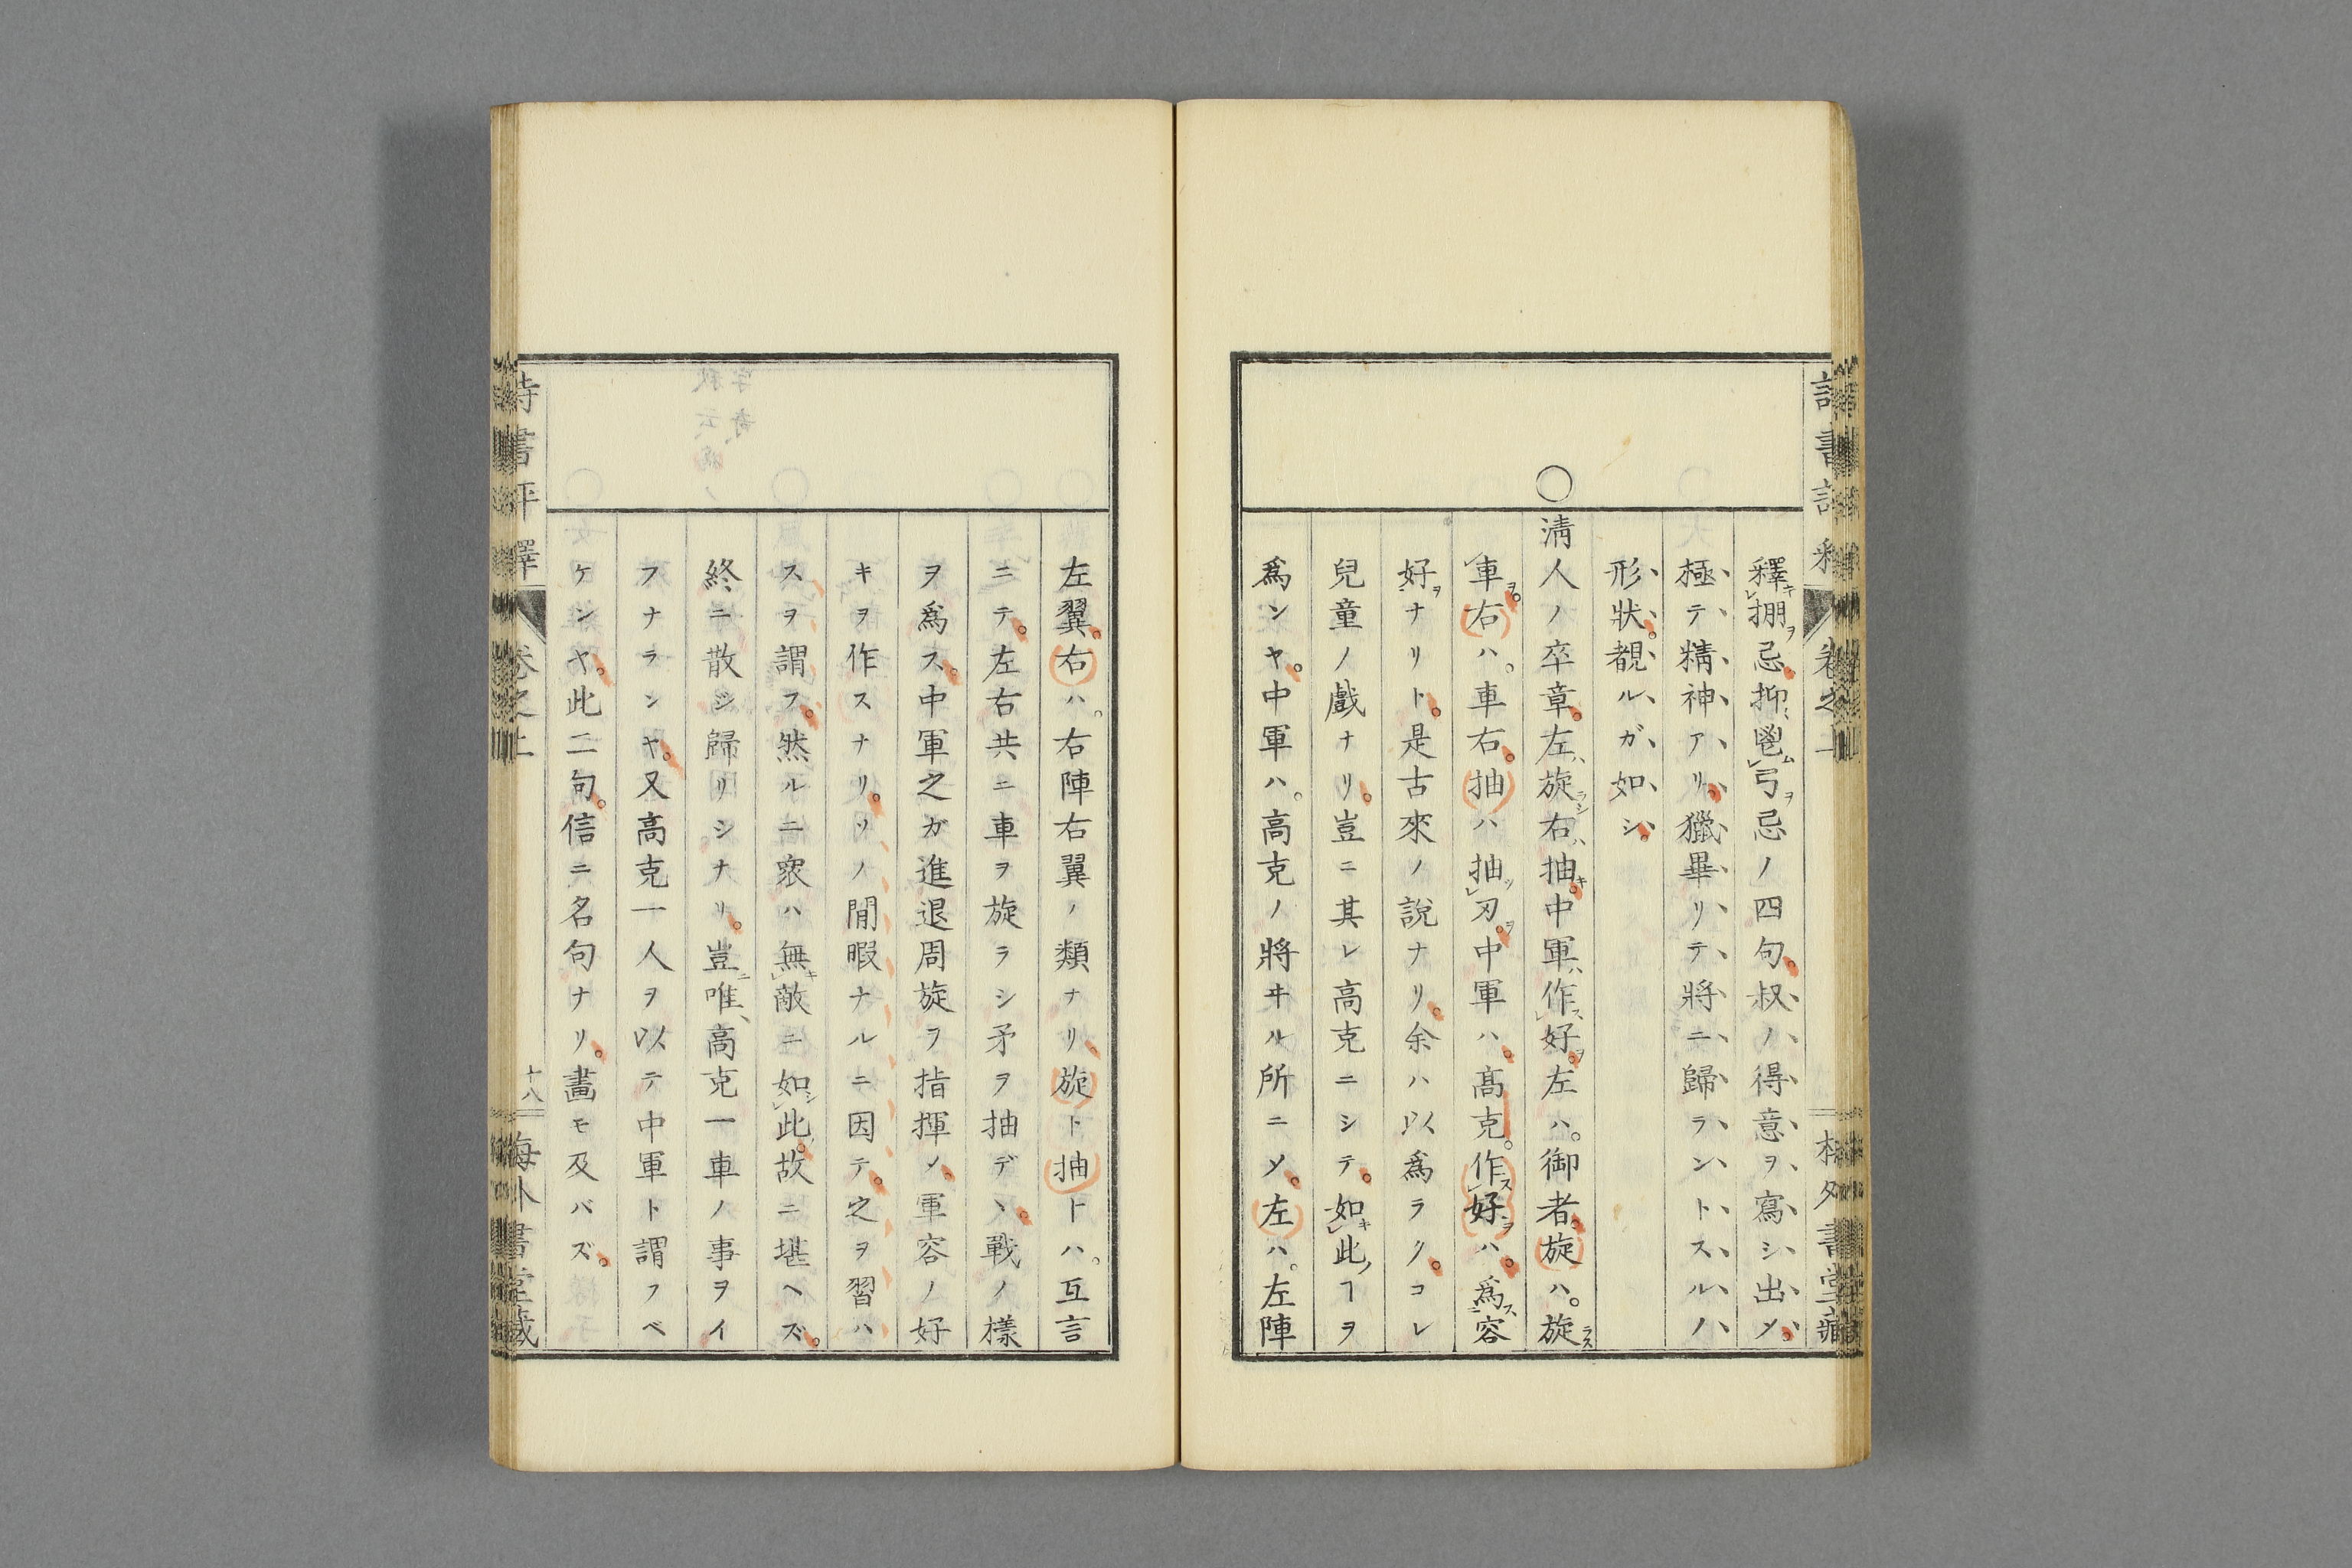 釋掤忌抑鬯弓忌ノ四句。叔ノ得意ヲ寫シ出〆。
極テ精神アリ。獵畢リテ將ニ歸ラントスルノ
形狀。覩ルガ如シ。
○清人ノ卒章。左旋右抽。中軍作好。左ハ。御者。旋ハ。旋
車。右ハ。車右。抽ハ抽刃。中軍ハ。高克。作好ハ。爲容
好ナリト。是古來ノ說ナリ。余ハ以爲ラク。コレ
兒童ノ戲ナリ。豈ニ其レ高克ニシテ。如此ヿヲ
爲ンヤ。中軍ハ。高克ノ將ヰル所ニ〆。左ハ。左陣
左翼。右ハ。右陣右翼ノ類ナリ。旋ト抽トハ。互言
ニテ。左右共ニ車ヲ旋ラシ矛ヲ抽デヽ。戰ノ樣
ヲ爲ス。中軍之ガ進退周旋ヲ指揮〆。軍容ノ好
キヲ作スナリ。ソノ閒暇ナルニ因テ。之ヲ習ハ
スヲ謂フ。然ルニ衆ハ無敵ニ如此。故ニ堪ヘズ。
終ニ散ジ歸リシナリ。豈唯高克一車ノ事ヲイ
フナランヤ。又高克一人ヲ以テ中軍ト謂フベ
ケンヤ。此二句。信ニ名句ナリ。畵モ及バズ。
詩書評釋 卷之上 十八